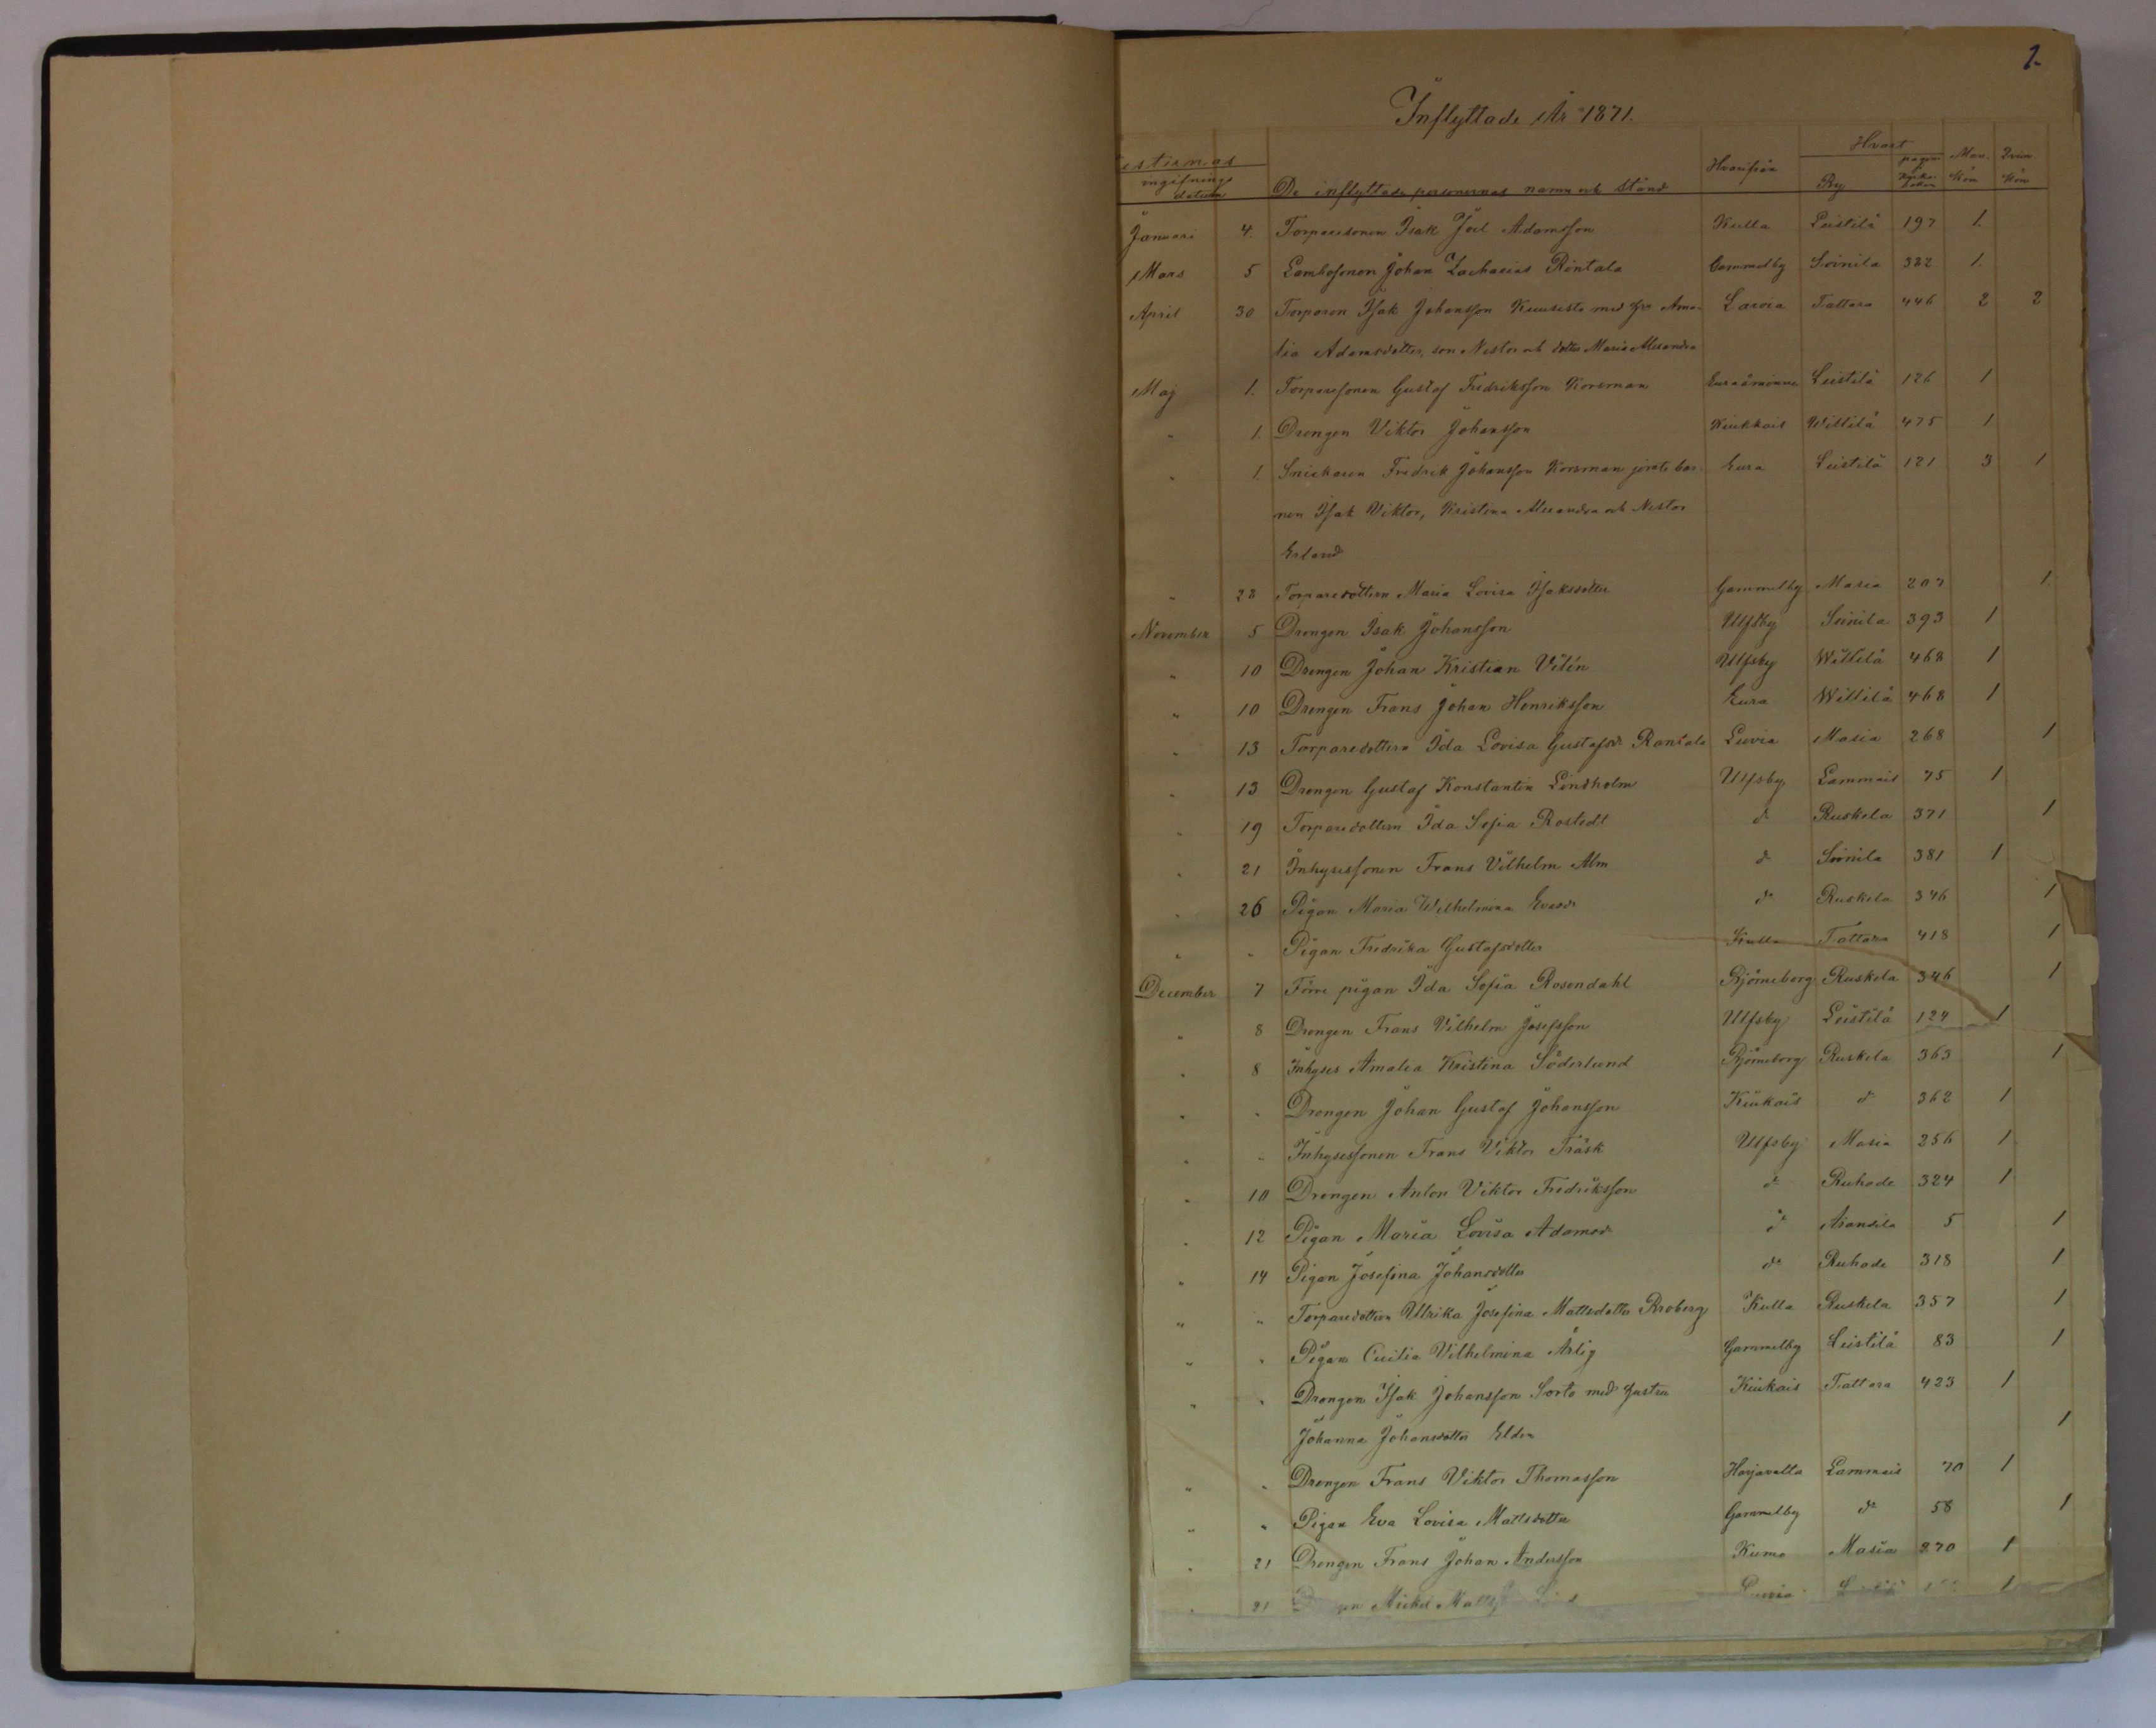 1.
Inflyttade År 1871.
esternas Hvart
ingifnings datum De inflyttade personernas namn och stånd Hvarifrån By pagin i Kyrko boken Man. Kön Qvin. Kön
Januari 4. Torparesonen Isak Joel Adamsson Kulla Leistilä 197 1.
Mars 5 Johan Zacharias Rintala Gammelby Soinila 382 1.
April 30 Torparen Isak Johansson Kuusisto med hru Ama- Lavia Tattara 446 2 2
lia Adamsdotter, son Nestor och dotter Maria Alexandra
Maj 1. Torparesonen Gustaf Fredriksson Korsman Euraåminne Leistilä 126 1
" 1. Drengen Viktor Johansson Kiukkais Wittilä 475 1
" 1. Snickaren Fredrik Johansson Korsman jemte bar- Eura Leistilä 121 3 1
nen Isak Viktor, Kristina Alexandra och Nestor
Erland
" 28 Torparedottern Maria Lovisa Isaksdotter Gammelby Masia 207 1
November 5 Drengen Isak Johansson Ulfsby Soinila 393 1
" 10 Drengen Johan Kristian Vilén Ulfsby Wittilä 468 1
" 10 Drengen Frans Johan Henriksson Eura Wittilä 468 1
" 13 Torparedottern Ida Lovisa Gustafsdr Rantala Luvia Masia 268 1
" 13 Drengen Gustaf Konstantin Lindholm Ulfsby Lammais 75 1
" 19 Torparedottern Ida Sofia Rostedt do Ruskela 371 1
" 21 Inhysessonen Frans Vilhelm Alm do Soinila 381 1
" 26 Pigan Maria Wilhelmina Evasdr do Ruskela 346 1
" " Pigan Fredrika Gustafsdotter Kulla Tattara 418 1
December 7 Förre pigan Ida Sofia Rosendahl Björneborg Ruskela 346 1
" 8 Drengen Frans Vilhelm Josefsson Ulfsby Leistilä 124 1
" 8 Inhyses Amalia Kristina Söderlund Björneborg Ruskela 363 1
" " Drengen Johan Gustaf Johansson Kiukais do 362 1
" " Inhysessonen Frans Viktor Träsk Ulfsby Masia 256 1
" 10 Drengen Anton Viktor Fredriksson do Ruhade 324 1
" 12 Pigan Maria Lovisa Adamsdr do Arantila 5 1
" 14 Pigan Josefina Johansdotter do Ruhade 318 1
" " Torparedottern Ulrika Josefina Mattsdotter Broberg Kulla Ruskela 357 1
" " Pigan Cecilia Vilhelmina Ärlig Gammelby Leistilä 83 1
" " Drengen Isak Johansson Sorto med hustru Kiukais Tattara 423 1
Johanna Johansdotter Elden 1
" " Drengen Frans Viktor Thomasson Harjavalta Lammais 70 1
" " Pigan Eva Lovisa Mattsdotter Gammelby do 58 1
" 21 Drengen Frans Johan Andersson Kumo Masia 270 1
" 21 Mickel 1